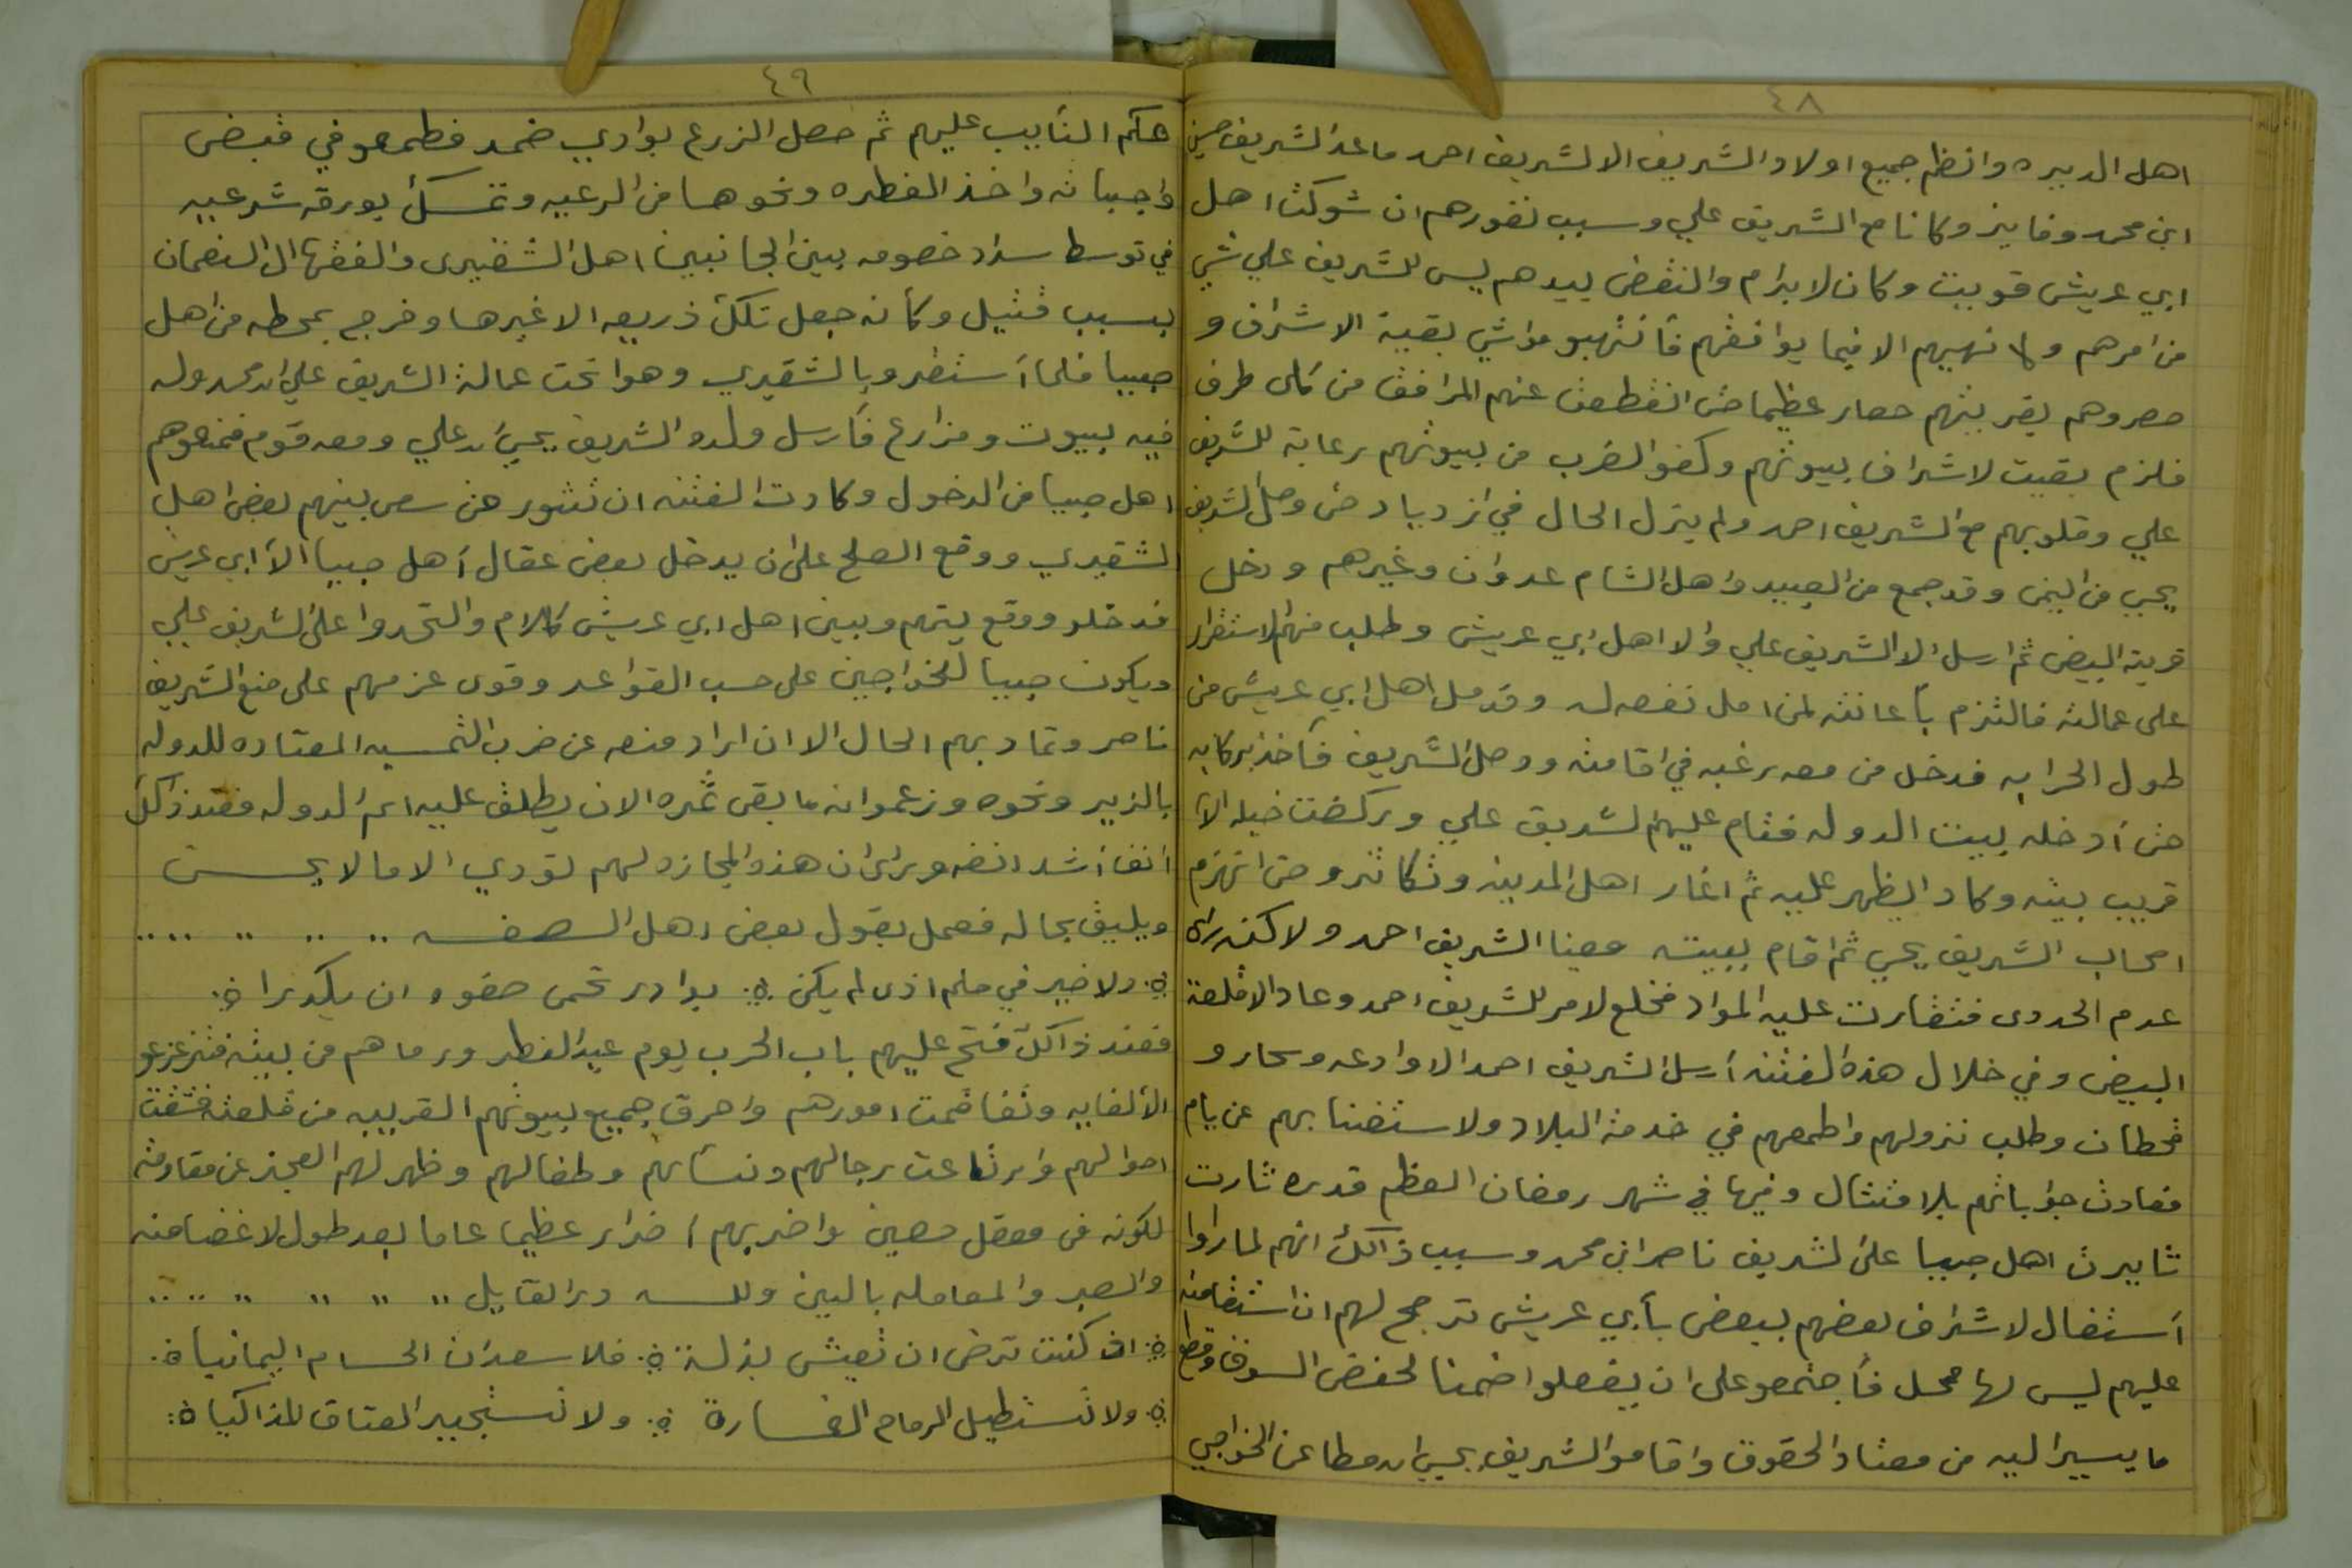 ٤٨
اهل الديره وانظم جميع اولاد الشريف الا لشريف احمد ماعد الشريف حسين
ابن محمد وفايز وكانا مع الشريف علي وسبب نفورهم ان شوكت اهل
ابي عريش قويت وكان لابرام والنقض بيدهم ليس للشريف علي شي
من امرهم ولا نهيهم الا فيما يوافقهم فأنتهبو مواشي بقية الاشراف و
حصروهم بقريتهم حصار عظيما حتى انقطعت عنهم المرافق من كلى طرف
فلزم بقيت لاشراف بيوتهم وكفو الضرب من بيوتهم رعاية للشريف
علي وقلوبهم مع الشريف احمد ولم يزل الحال في ازدياد حتى وصل الشريف
يحيى من اليمن وقد جمع من العبيد واهل الشام عدوان وغيرهم ودخل
قرية البيض ثم ارسل الا الشريف علي والا اهل ابي عريش وطلب منهم الاستقرار
على عمالته فالتزم بأعانته لمن امل نفعه له وقد مل اهل ابي عريش من
طول الحرابه فدخل من معه رغبه في اقامته ووصل الشريف فأخذ بركابه
حتى أدخله بيت الدوله فقام عليهم الشريف علي وركضت خيله الأ
قريب بيته وكاد اليظهر عليه ثم اغار اهل المدينه وتكاثرو حتى انهزم
اصحاب الشريف يحيى ثم اقام ببيته معينا الشريف احمد ولاكنه رأى
عدم الجدوى فتقارت عليه المواد فخلع لامر للشريف احمد وعاد الا قلعة
البيض وفي خلال هذه الفتنه أرسل الشريف احمد الا وادعه وسحار و
قحطان وطلب نزولهم واطمعهم في خدمة البلاد ولاستغنا بهم عن يام
فعادت جواباتهم بلامتثال وفيها في شهر رمضان المعظم قدره ثارت
ثايرت اهل صبيا على الشريف ناصر ابن محمد وسبب ذالك انهم لما راوا
أستغال لاشراف بعضهم ببعض بأبي عريش ترجح لهم ان استقامته
عليهم ليس لها محل فأجتمعو على ان يفعلوا ضمنا لحفض السوق وقطع
ما يسير اليه من معتاد الحقوق واقامو الشريف يحيى ابن مطاعن الخواجي
٤٩
حكم النأيب عليهم ثم حصل الزرع بوادي ضمد فطمعو في قبض
واجباته واخذ الفطره ونحوها من الرعيه وتمسك بورقه شرعيه
في توسط سداد خصومه بين الجانبين اهل الشقيرى والفقها ال النعمان
بسبب قتيل وكأنه جعل تلك ذريعه الا غيرها وخرج بمحطه من اهل
صبيا فلما أستقرو بالشقيري وهوا تحت عمالة الشريف علي ابن محمد وله
فيه بيوت ومزارع فأرسل ولده الشريف يحيى ابن علي ومعه قوم فمنعوهم
اهل صبيا من الدخول وكادت الفتنه ان تثور حتى سعى بينهم بعض اهل
الشقيري ووقع الصلح على ان يدخل بعض عقال أهل صبيا ألأ ابي عريش
فدخلو ووقع بينهم وبين اهل ابي عريش كلام والتحدوا على الشريف علي
ويكون صبيا للخواجين على حسب القواعد وقوى عزمهم على منع الشريف
ناصر وتماد بهم الحال الا ان اراد منعه عن ضرب الخمسه المعتاده للدوله
بالزير ونحوه وزعموا انه ما بقى ثمره الان يطلق عليه اسم الدوله فعند ذالك
انف أشد انفه وراى ان هذه المجازه لهم تؤدي الا ما لا يحسن
ويليق بحاله فعمل بقول بعض اهل الصفه .. .. .. ....
ولا خير في حلم اذى لم يكن بوادر تحمى صفوه ان يكدرا
فعند ذالك فتح عليهم باب الحرب يوم عيد الفطر ورماهم من بيته فتزعزعو
الألغايه وتفاقمت امورهم واحرق جميع بيوتهم القريبه من قلعته فتشتت
احوالهم وارتاعت رجالهم ونسأهم وطفالهم وظهر لهم العجز عن مقاومته
لكونه في معقل حصين واضر بهم اضرار عظيما عاما بعد طول لاغضا منه
والصبر والمعامله بالين ولله در القايل .. .. .. .. ....
اذ كنت ترضى ان تعيش بذلة فلا سعدان الحسام اليمانيا
ولا تستطيل الرماح الغسارة ولا تستجير العتاق المذاكيا